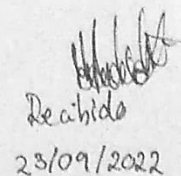 Recibido
23/09/2022